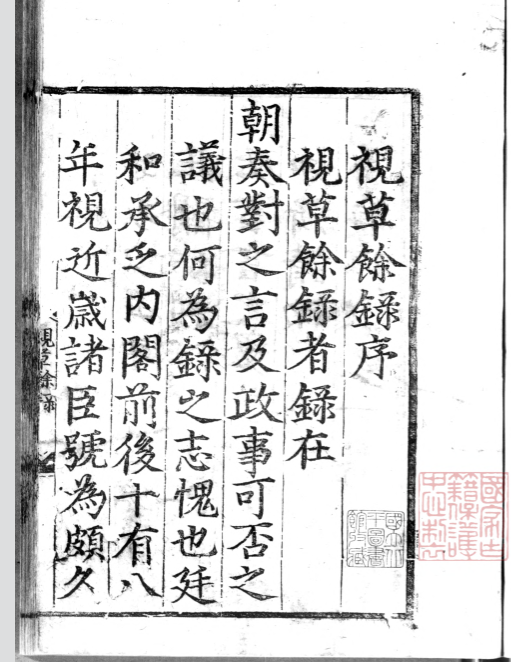 視草餘錄序
視草餘錄者錄在
朝奏對之言及政事可否之
議也何為錄之志愧也廷
和承乏內閣前後十有八
年視近歲諸臣號為頗久
視草餘錄
國立北
平圖書
館收藏
國家古
籍保護
中心